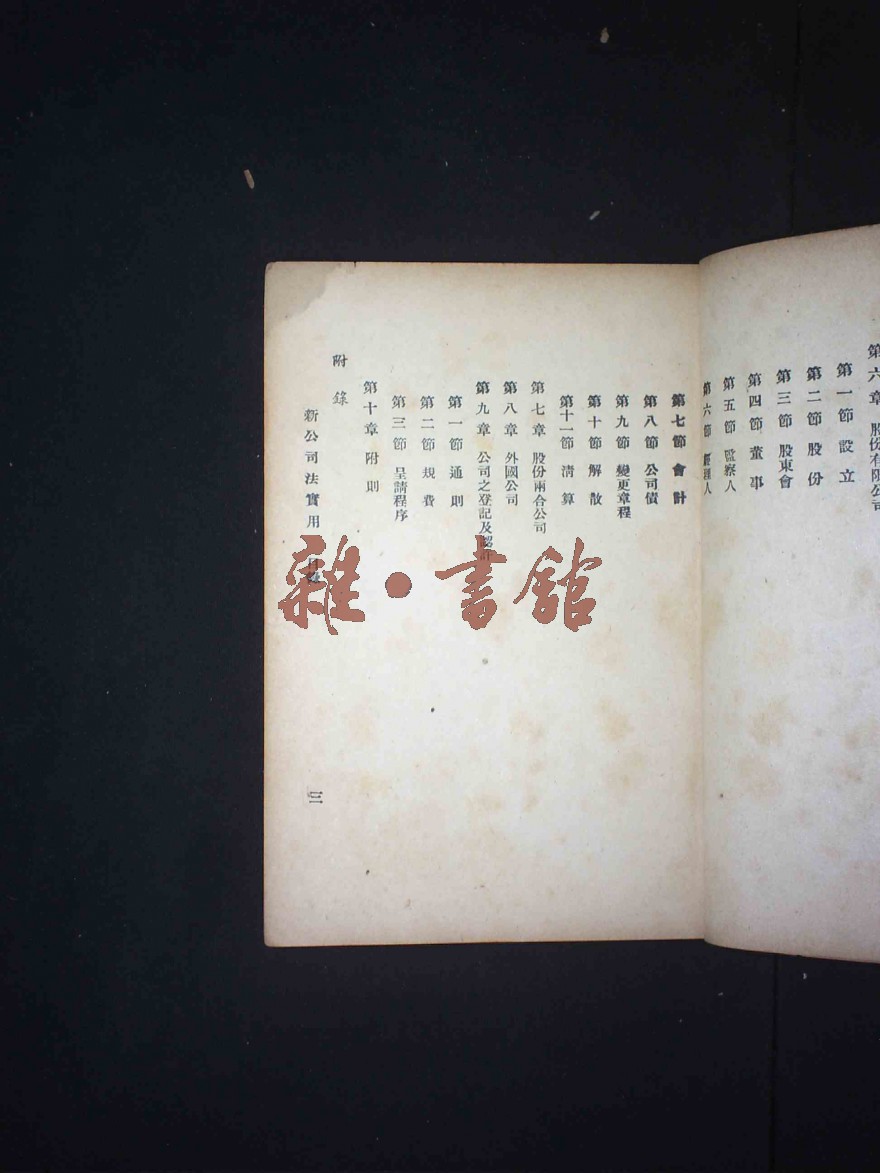 第六章 股份有限公司
第一節 設立
第二節 股份
第三節 股東會
第四節 董事
第五節 監察人
第六節 經理人
第七節 會計
第八節 公司債
第九節 變更章程
第十節 解散
第十一節 清算
第七章 股份兩合公司
第八章 外國公司
第九章 公司之登記及認許
第一節 通則
第二節 規費
第三節 呈請程序
第十章 附則
附錄
新公司法實用 目錄
三
雜·書館